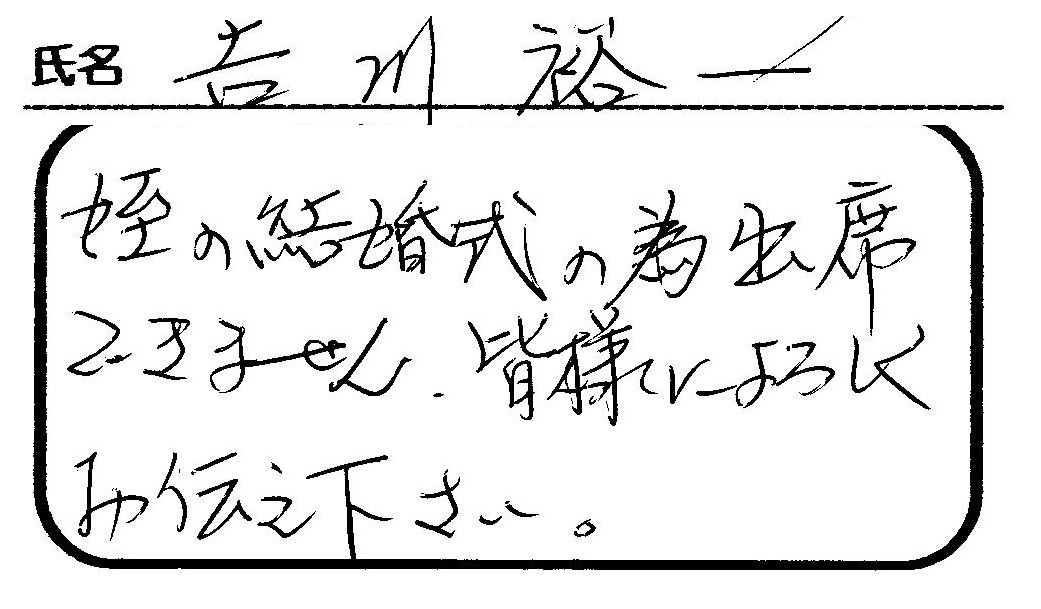 氏名 吉川 裕一
姪の結婚式の為出席
できません.皆様によろしく
お伝え下さい。